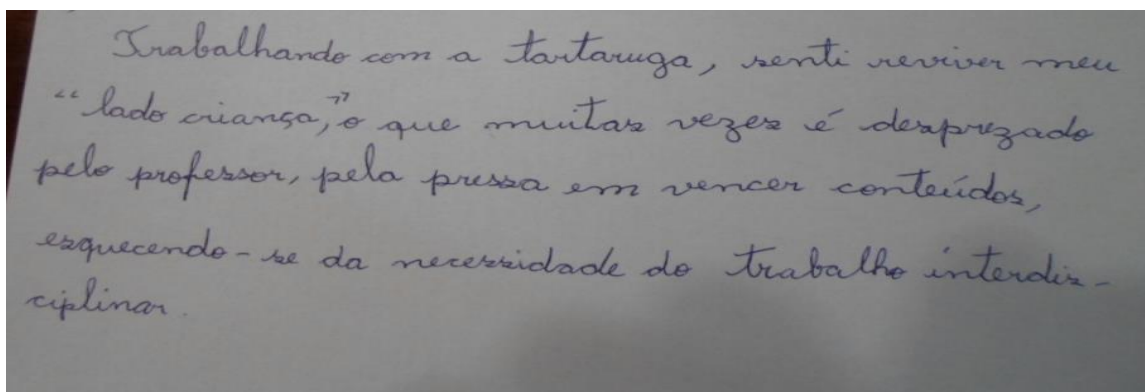 Trabalhando com a tartaruga, senti reviver meu
“lado criança,” o que muitas vezes é desprezado
pelo professor, pela pressa em vencer conteúdos,
esquecendo-se da necessidade do trabalho interdis-
ciplinar.